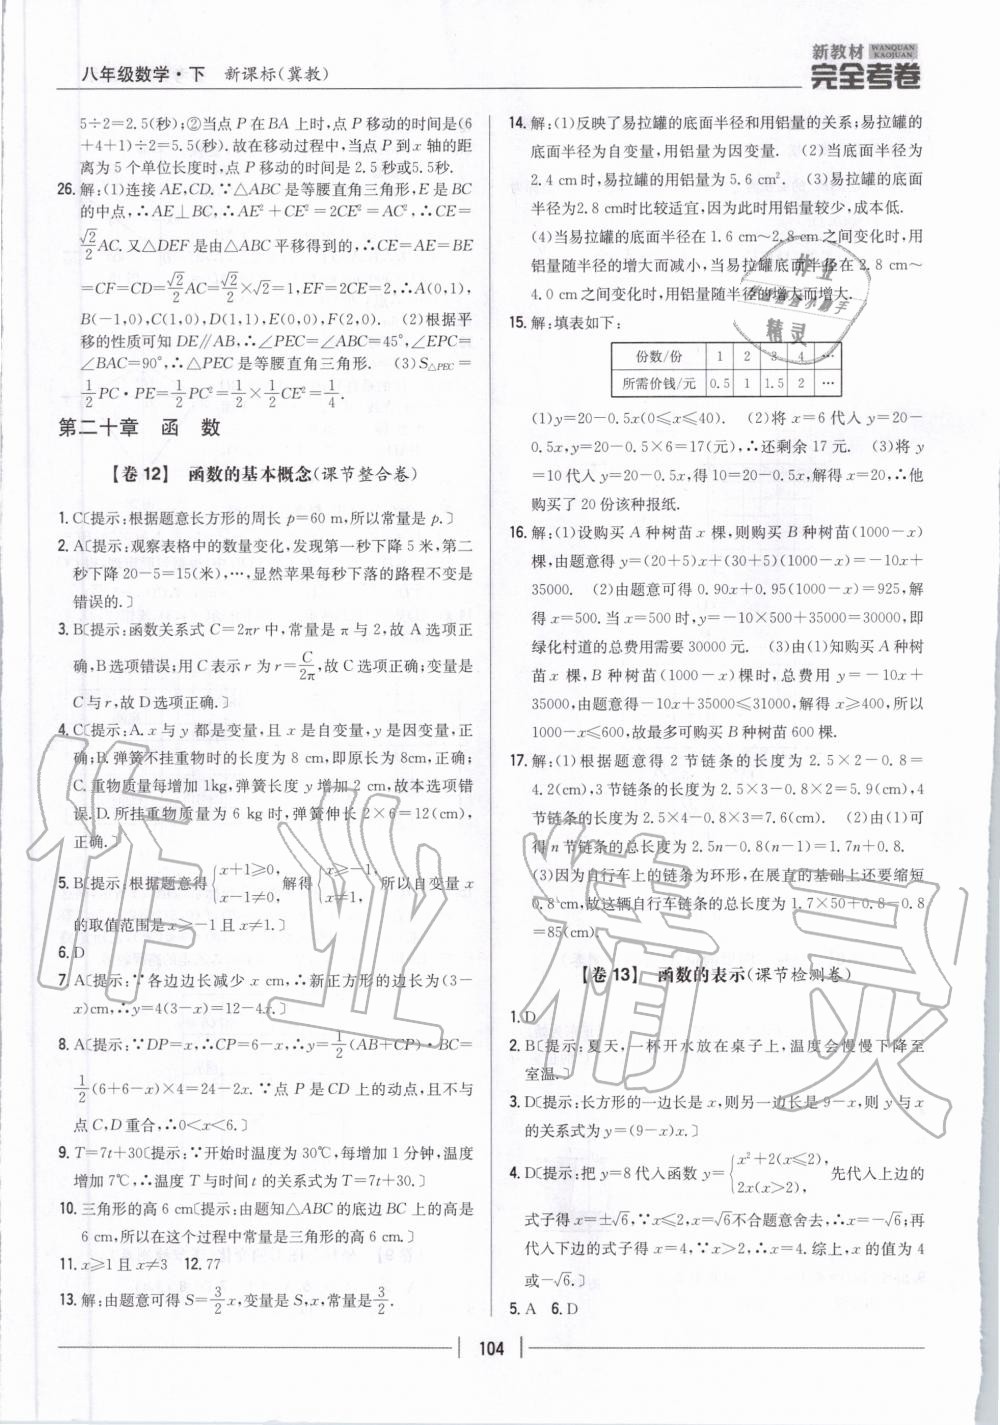 八年级数学·下 新课标(冀教)
新教材 WANQUAN KAOJUAN
完全考卷
5÷2=2.5(秒);②当点 P 在 BA 上时,点 P 移动的时间是(6
+4+1)÷2=5.5(秒). 故在移动过程中,当点 P 到 x 轴的距
离为 5 个单位长度时,点 P 移动的时间是 2.5 秒或5.5秒.
26. 解:(1)连接 AE,CD. ∵△ABC 是等腰直角三角形,E 是 BC
的中点,∴AE⊥BC,∴AE²+CE²=2CE²=AC²,∴CE=
√2/2 AC. 又△DEF 是由△ABC 平移得到的,∴CE=AE=BE
=CF=CD=√2/2 AC=√2/2×√2=1,EF=2CE=2,∴A(0,1),
B(-1,0),C(1,0),D(1,1),E(0,0),F(2,0). (2)根据平
移的性质可知 DE∥AB,∴∠PEC=∠ABC=45°,∠EPC=
∠BAC=90°,∴△PEC 是等腰直角三角形. (3)S△PEC=
1/2 PC·PE=1/2 PC²=1/2×1/2 CE²=1/4.
第二十章 函 数
【卷 12】 函数的基本概念(课节整合卷)
1. C〔提示:根据题意长方形的周长 p=60 m,所以常量是 p.〕
2. A〔提示:观察表格中的数量变化,发现第一秒下降 5 米,第二
秒下降 20-5=15(米),…,显然苹果每秒下落的路程不变是
错误的.〕
3. B〔提示:函数关系式 C=2πr 中,常量是 π 与 2,故 A 选项正
确,B选项错误;用 C 表示 r 为 r=C/2π,故 C 选项正确;变量是
C 与 r,故 D 选项正确.〕
4. C〔提示:A. x 与 y 都是变量,且 x 是自变量,y 是因变量,正
确;B. 弹簧不挂重物时的长度为 8 cm,即原长为 8cm,正确;
C. 重物质量每增加 1kg,弹簧长度增加 2 cm,故本选项错
误. D. 所挂重物质量为 6 kg 时,弹簧伸长 2×6=12(cm),
正确.〕
5. B〔提示:根据题意得{x+1≥0, x-1≠0, 解得{x≥-1, x≠1, 所以自变量 x
的取值范围是 x≥-1 且 x≠1.〕
6. D
7. A〔提示:∵各边边长减少 x cm,∴新正方形的边长为(3-
x)cm,∴y=4(3-x)=12-4x.〕
8. A〔提示:∵DP=x,∴CP=6-x,∴y=1/2(AB+CP)·BC=
1/2(6+6-x)×4=24-2x. ∵点 P 是 CD 上的动点,且不与
点 C,D 重合,∴0<x<6.〕
9. T=7t+30〔提示:∵开始时温度为 30℃,每增加 1 分钟,温度
增加 7℃,∴温度 T 与时间 t 的关系式为 T=7t+30.〕
10. 三角形的高 6 cm〔提示:由题知△ABC 的底边 BC 上的高是
6 cm,所以在这个过程中常量是三角形的高 6 cm.〕
11. x≥1 且 x≠3 12. 77
13. 解:由题意可得 S=3/2 x,变量是 S,x,常量是3/2.
14. 解:(1)反映了易拉罐的底面半径和用铝量的关系;易拉罐的
底面半径为自变量,用铝量为因变量. (2)当底面半径为
2.4 cm时,易拉罐的用铝量为 5.6 cm². (3)易拉罐的底面
半径为2.8 cm时比较适宜,因为此时用铝量较少,成本低.
(4)当易拉罐的底面半径在 1.6 cm～2.8 cm 之间变化时,用
铝量随半径的增大而减小,当易拉罐底面半径在 2.8 cm～
4.0 cm 之间变化时,用铝量随半径的增大而增大.
15. 解:填表如下:
份数/份 1 2 3 4 …
所需价钱/元 0.5 1 1.5 2 …
(1)y=20-0.5x(0≤x≤40). (2)将 x=6 代入 y=20-
0.5x,y=20-0.5×6=17(元),∴还剩余 17 元. (3)将 y
=10代入 y=20-0.5x,得 10=20-0.5x,解得x=20,∴他
购买了 20 份该种报纸.
16. 解:(1)设购买 A 种树苗 x 棵,则购买 B 种树苗(1000-x)
棵,由题意得 y=(20+5)x+(30+5)(1000-x)=-10x+
35000. (2)由题意可得 0.90x+0.95(1000-x)=925,解
得 x=500. 当 x=500 时,y=-10×500+35000=30000,即
绿化村道的总费用需要 30000 元. (3)由(1)知购买 A 种树
苗 x 棵,B 种树苗(1000-x)棵时,总费用 y=-10x+
35000,由题意得-10x+35000≤31000,解得 x≥400,所以
1000-x≤600,故最多可购买 B 种树苗 600 棵.
17. 解:(1)根据题意得 2 节链条的长度为 2.5×2-0.8=
4.2(cm),3 节链条的长度为 2.5×3-0.8×2=5.9(cm),4
节链条的长度为 2.5×4-0.8×3=7.6(cm). (2)由(1)可
得 n 节链条的总长度为 2.5n-0.8(n-1)=1.7n+0.8.
(3)因为自行车上的链条为环形,在展直的基础上还要缩短
0.8cm,故这辆自行车链条的总长度为 1.7×50+0.8-0.8
=85(cm).
【卷 13】 函数的表示(课节检测卷)
1. D
2. B〔提示:夏天,一杯开水放在桌子上,温度会慢慢下降至
室温.〕
3. D〔提示:长方形的一边长是 x,则另一边长是 9-x,则 y 与 x
的关系式为 y=(9-x)x.〕
4. D〔提示:把 y=8 代入函数 y={x²+2(x≤2), 2x(x>2), 先代入上边的
式子得 x=±√6,∵x≤2,x=√6不合题意舍去,∴-√6;再
代入下边的式子得 x=4,∵x>2,∴x=4. 综上,x 的值为 4
或-√6.〕
5. A 6. D
104
作业精灵
作业
精灵